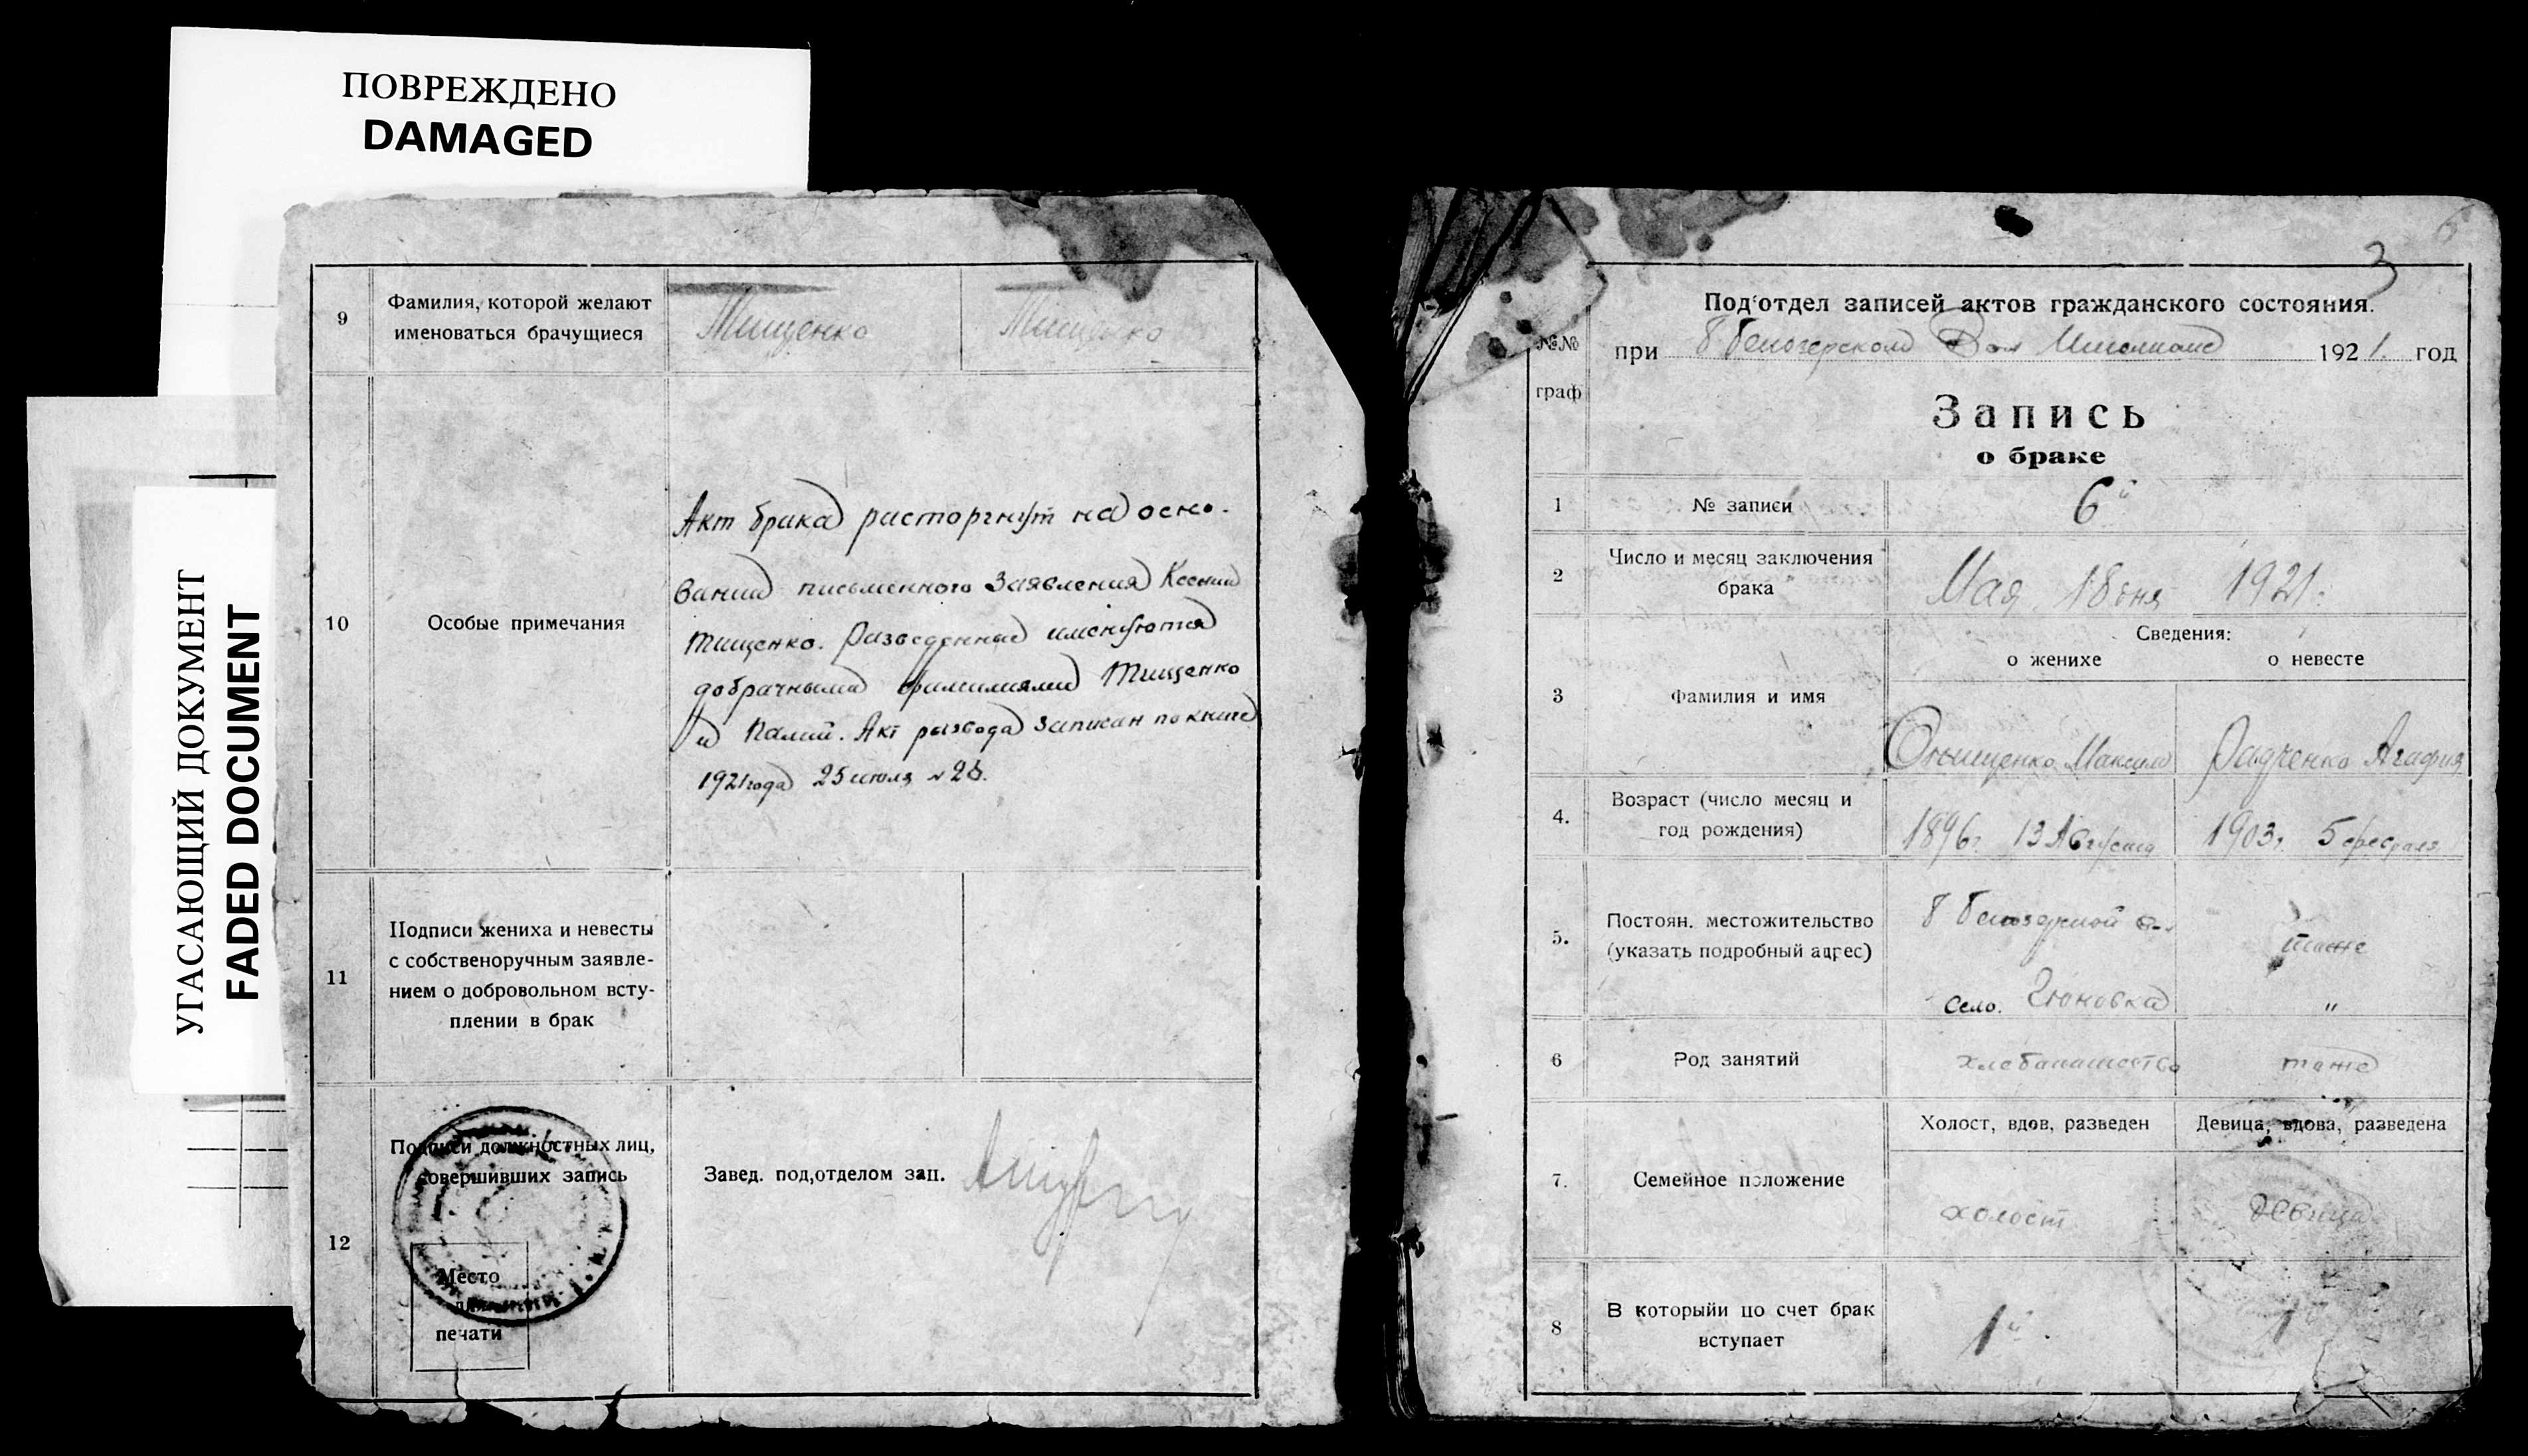 ПОВРЕЖДЕНО
DAMAGED
УГАСАЮЩИЙ ДОКУМЕНТ
FADED DOCUMENT
9
Фамилия, которой желают
именоваться брачущиеся
Тищенко
Тищенко
10
Особые примечания
Акт брака расторгнут на осно-
вании письменного заявления Ксении
Тищенко. Разведенные именуются
добрачными фамилиями Тищенко
и Палий. Акт развода записан по книге
1921 года 25 июля №
11
Подписи жениха и невесты
с собственоручным заявле-
нием о добровольном всту-
плении в брак
12
Подписи должностных лиц,
совершивших запись
Завед. под‚отделом зап.
Место
для
печати
6
3
№№
граф
Под‘отдел записей актов гражданского состояния.
при 1921. год
Запись
о браке
1
№ записи
6й
2
Число и месяц заключения
брака
Мая 18 дня 1921.
Сведения:
о женихе
о невесте
3
Фамилия и имя
Онищенко Максим
Радченко Агафия
4.
Возраст (число месяц и
год рождения)
1896г. 13 Августа
1903г. 5 февраля
5.
Постоян. местожительство
(указать подробный адрес)
село.
тоже
"
6
Род занятий
хлебопашество
тоже
Холост, вдов, разведен
Девица, вдова, разведена
7.
Семейное положение
холост
девица
8
В которыйи по счет брак
вступает
1й.
1й